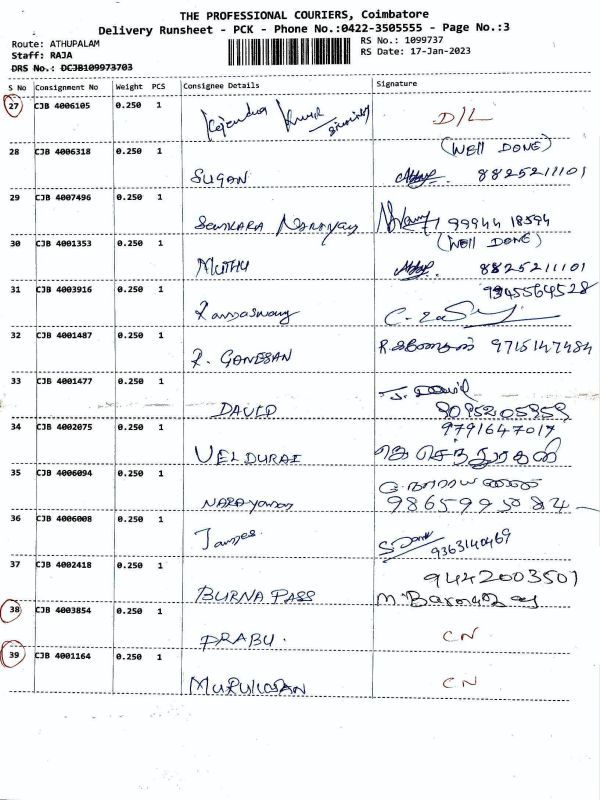 THE PROFESSIONAL COURIERS, Coimbatore
Delivery Runsheet - PCK - Phone No.:0422-3505555 - Page No.:3
Route: ATHUPALAM
RS No.: 1099737
Staff: RAJA
RS Date: 17-Jan-2023
DRS No.: DCJB109973703
S No Consignment No Weight PCS Consignee Details Signature
27 CJB 4006105 0.250 1 D/L
28 CJB 4006318 0.250 1 (Well DONE)
SUGAN 8825211101
29 CJB 4007496 0.250 1
SANKARA NARAYAN 99944 18594
30 CJB 4001353 0.250 1 (Well DONE)
MUTHU 8825211101
31 CJB 4003916 0.250 1 9345564528
Ramaswamy
32 CJB 4001487 0.250 1
R. GANESAN R. கணேசன் 9715147484
33 CJB 4001477 0.250 1 J. David
DAVID 9095205959
34 CJB 4002075 0.250 1 9791647017
VELDURAI
35 CJB 4006094 0.250 1
NARAYANAN 9865995084
36 CJB 4006008 0.250 1
James. 9363140469
37 CJB 4002418 0.250 1 9442003501
BURNA PASS
38 CJB 4003854 0.250 1 CN
PRABU.
39 CJB 4001164 0.250 1 CN
MURUKASAN